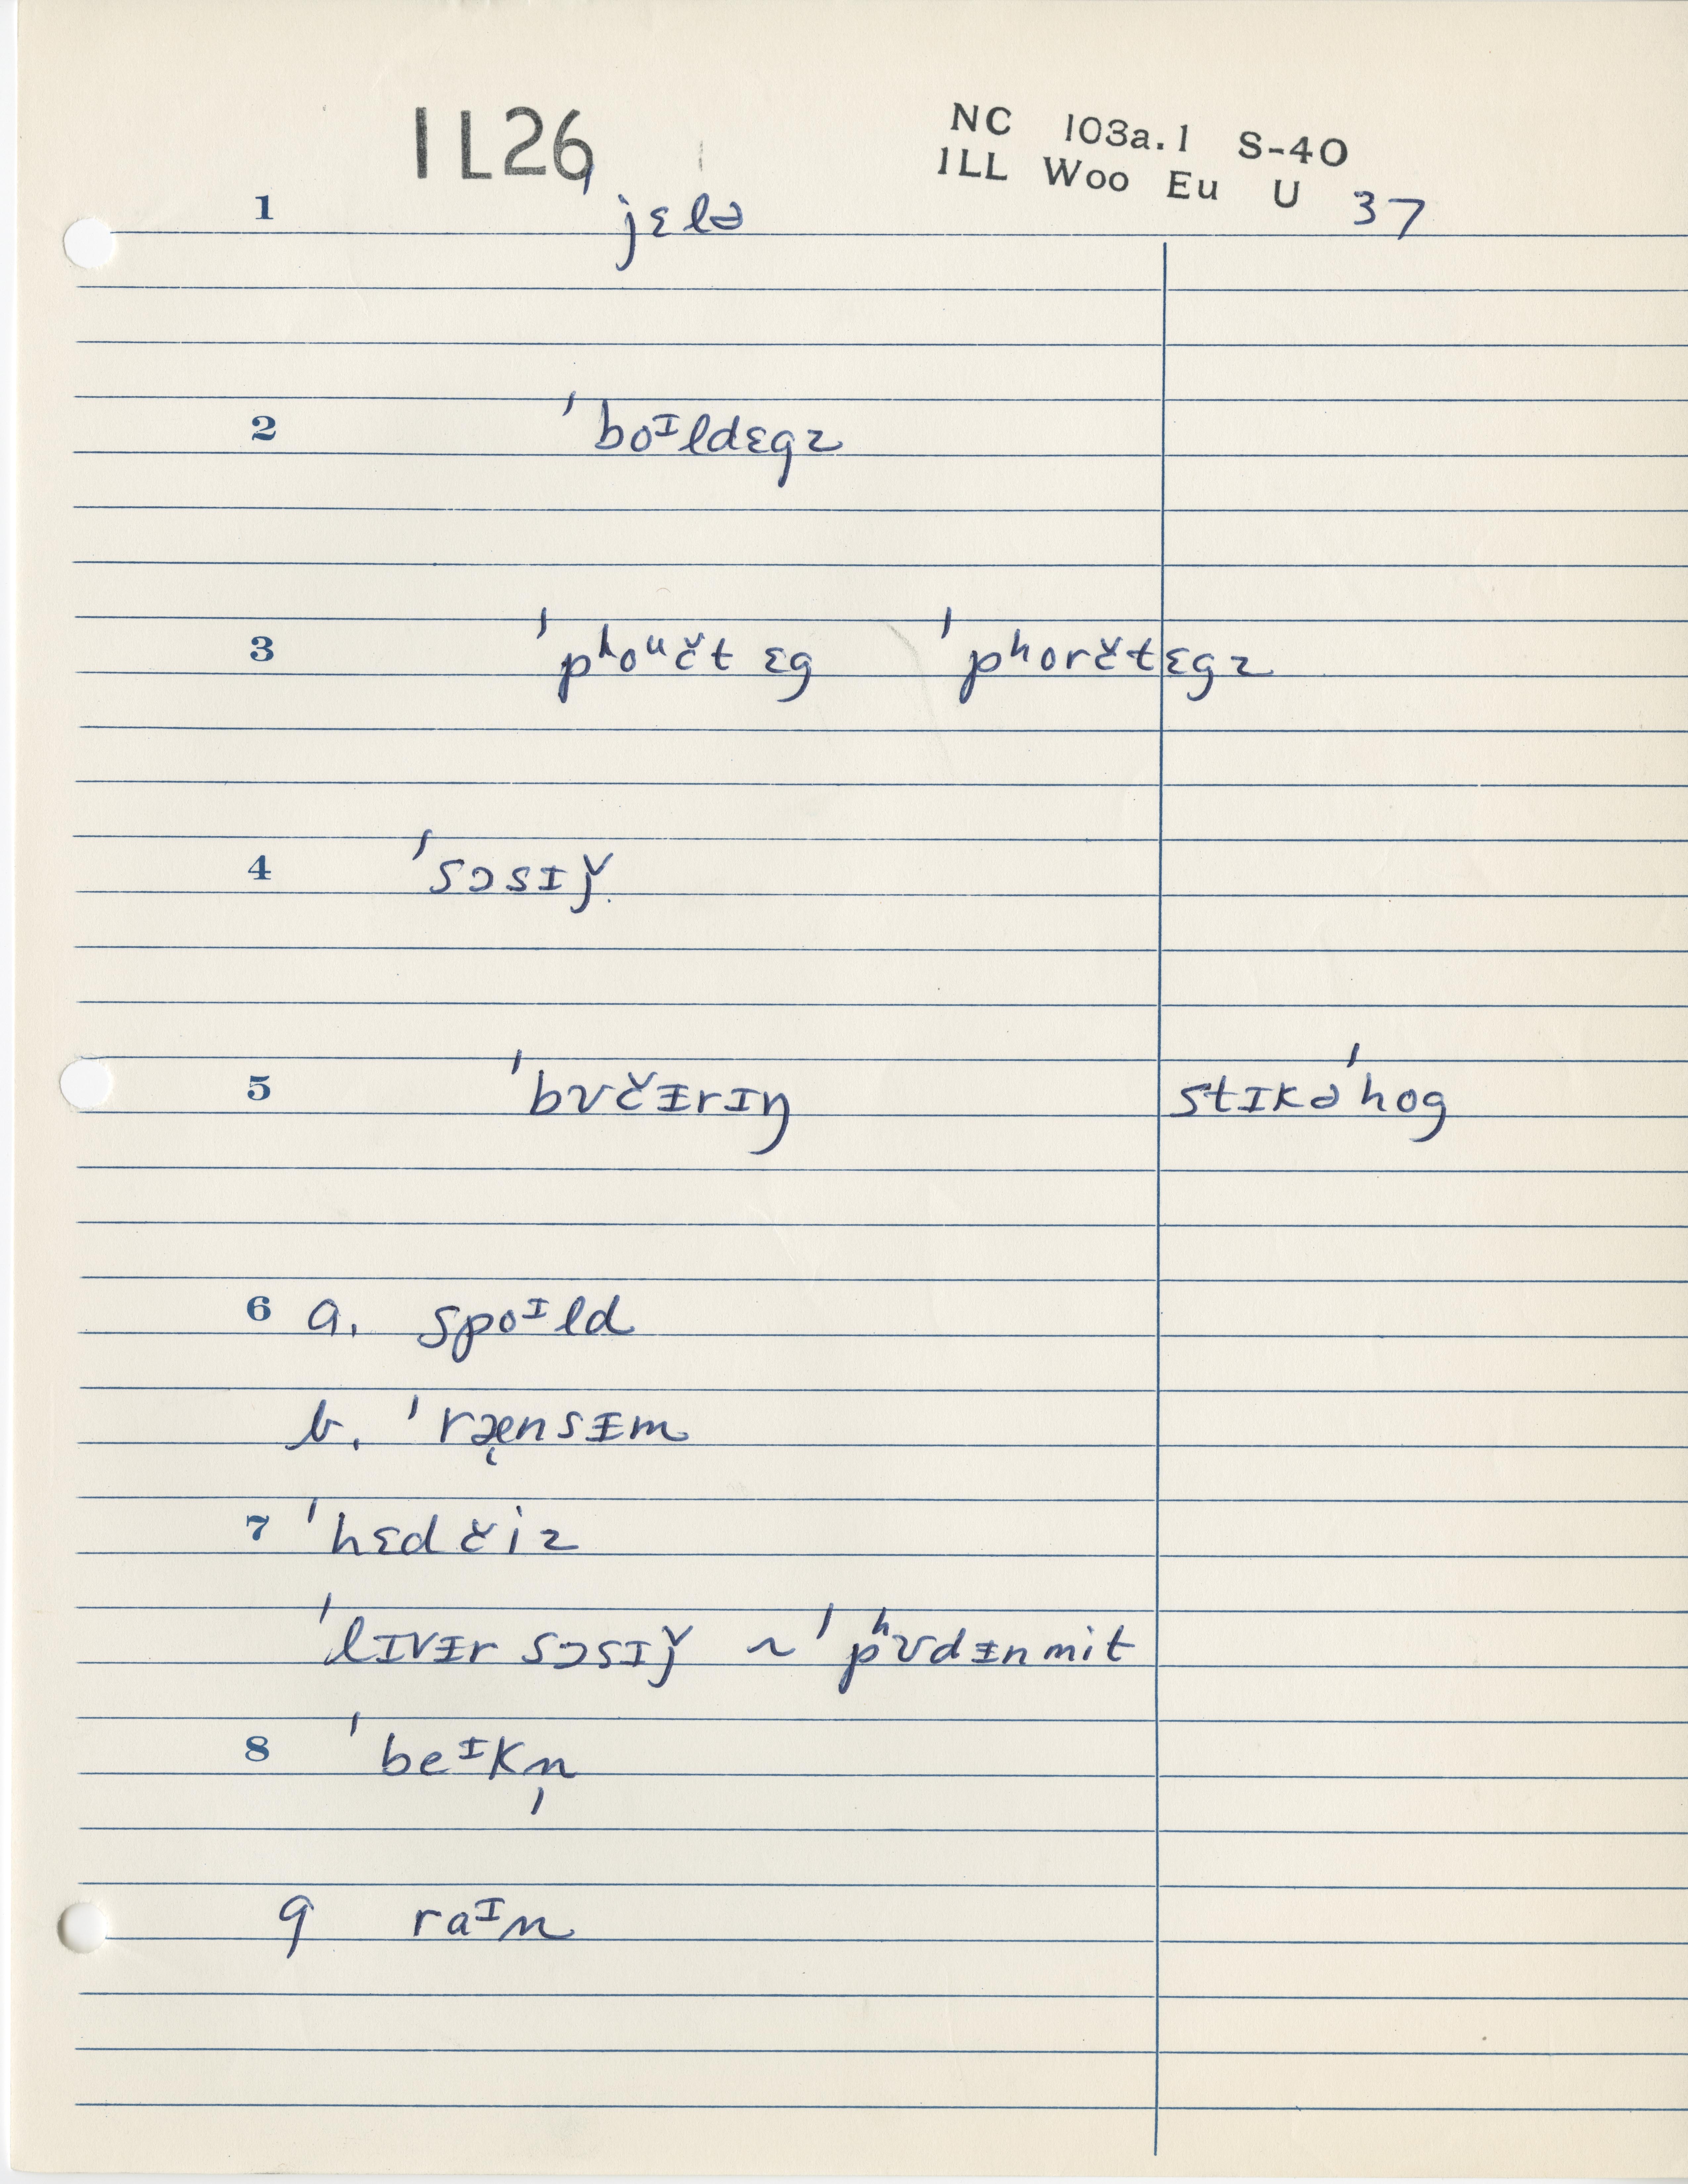 1L26
NC 103a.1 S-40
ILL Woo Eu U 37
1 ˈjɛlə
2 ˈboᶦldɛgz
3 ˈpʰoᵘčt ɛg ˈpʰorčtɛgz
4 ˈsɔsɪǰ
5 ˈbʊčᵻrɪŋ stɪkəˈhog
6 a. spoᶦld
b. ˈræ̨nsᵻm
7 ˈhɛdčiz
ˈlɪvᵻr sɔsɪǰ ~ ˈpʰʊdᵻnmit
8 ˈbeᶦkn̩
9 raᶦn